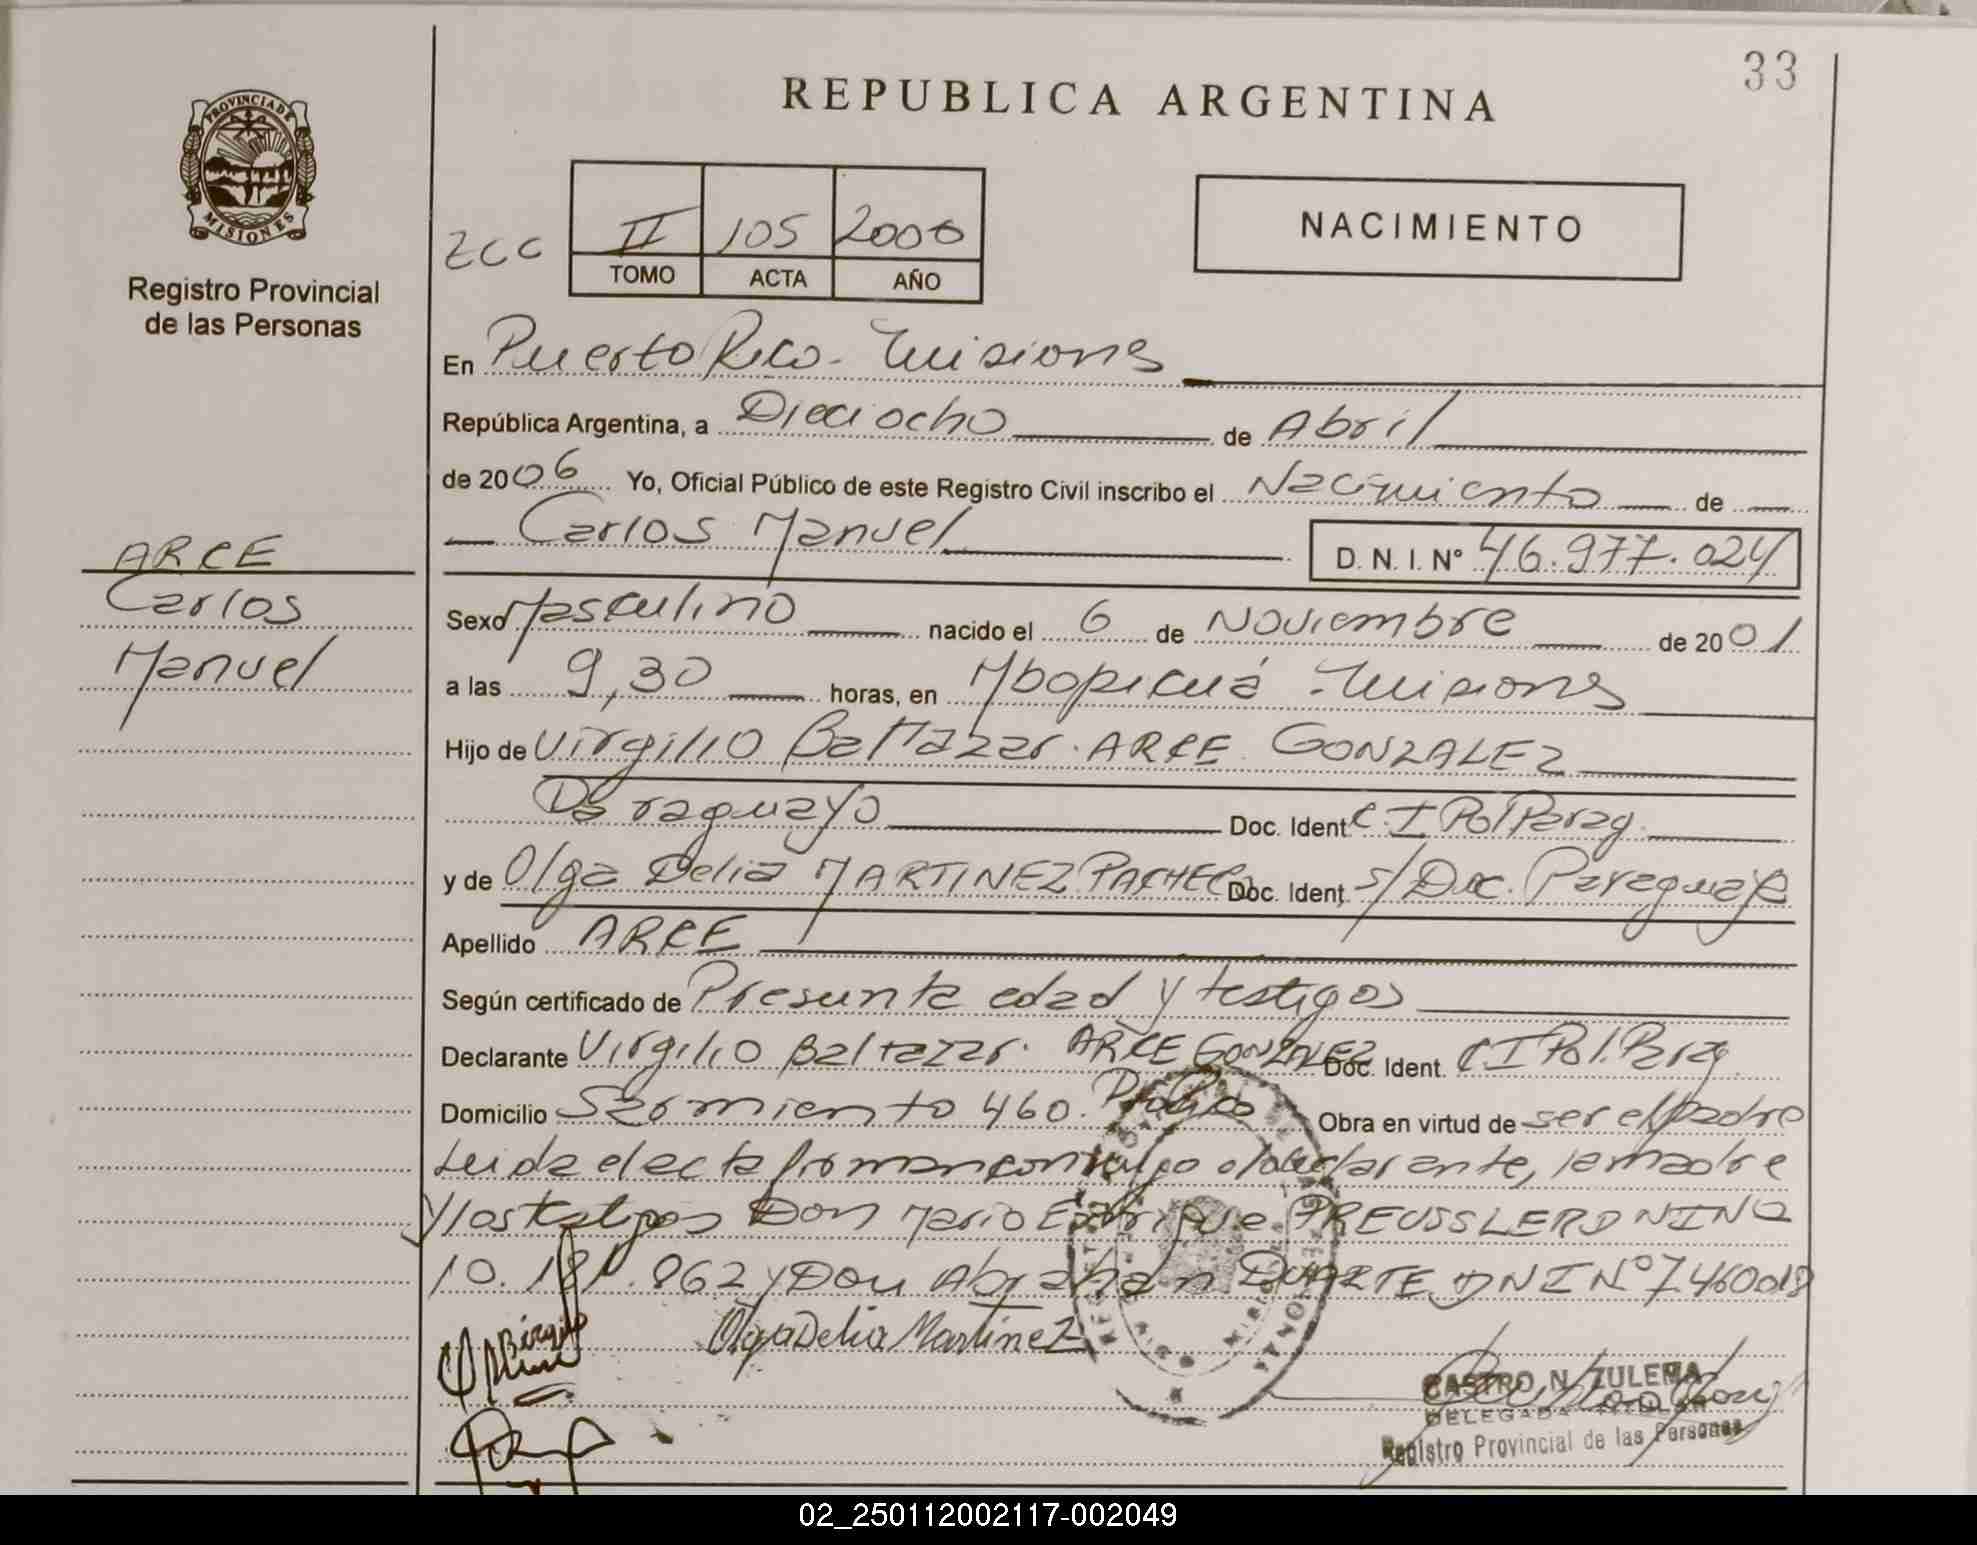 33
REPUBLICA ARGENTINA
PROVINCIA DE
MISIONES
Registro Provincial
de las Personas
ZCC
II 105 2006
TOMO ACTA AÑO
NACIMIENTO
En Puerto Rico - Misiones
República Argentina, a Dieciocho de Abril
de 2006 Yo, Oficial Público de este Registro Civil inscribo el Nacimiento de
Carlos Manuel D. N. I. N° 46.977.024
ARCE
Carlos
Manuel
Sexo Masculino nacido el 6 de Noviembre de 2001
a las 9,30 horas, en Mbopicuá - Misiones
Hijo de Virgilio Baltazar ARCE GONZALEZ
Paraguayo Doc. Ident. C I Pol Parag.
y de Olga Delia MARTINEZ PACHECO Doc. Ident. s/Doc. Paraguaya
Apellido ARCE
Según certificado de Presunta edad y testigos
Declarante Virgilio Baltazar ARCE GONZALEZ Doc. Ident. C I Pol. Parag
Domicilio Sarmiento 460. Pto Rico Obra en virtud de ser el padre
Leida el acta firman conmigo el declarante, la madre
y los testigos Don Mario Enrique PREUSSLER DNI Nº
10.181.862 y Don Abrahan DUARTE DNI Nº 7.460018
Olga Delia Martinez
CASTRO N. ZULEMA
DELEGADA TITULAR
Registro Provincial de las Personas
02_250112002117-002049